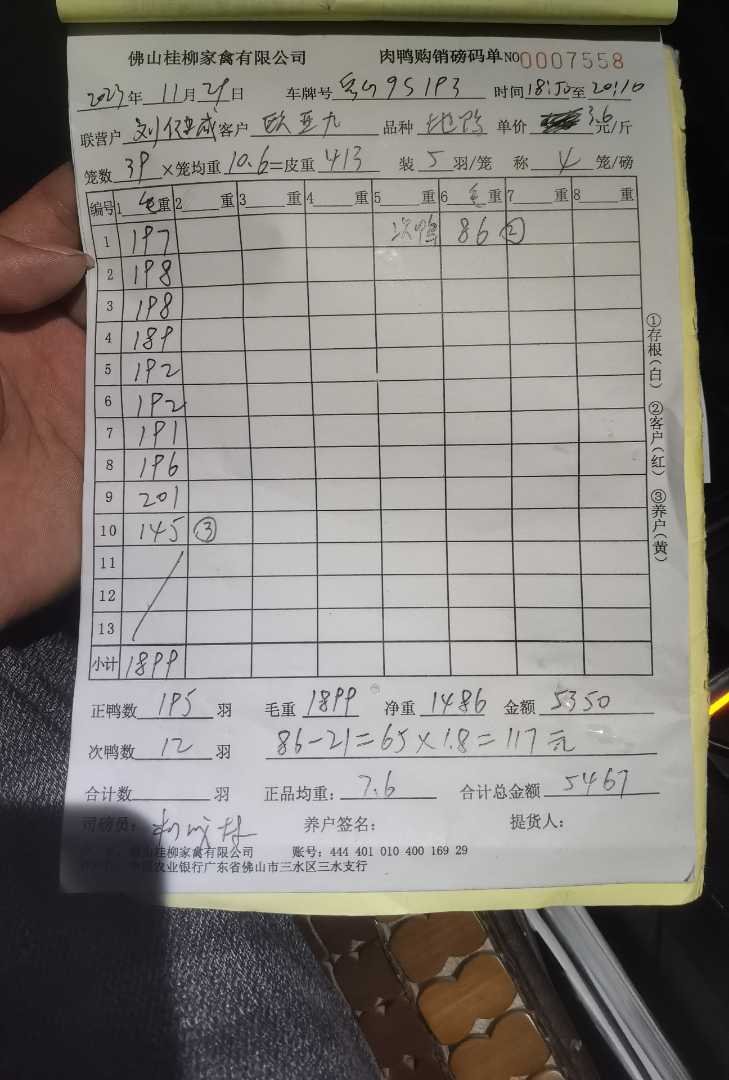 佛山桂柳家禽有限公司 肉鸭购销磅码单 NO 0007558
2023年 11月 29日 车牌号 95193 时间 18:50 至 20:10
联营户 刘健威 客户 欧亚九 品种 地鸭 单价 3.6 元/斤
笼数 39 ×笼均重 10.6 =皮重 413 装 5 羽/笼 称 4 笼/磅
编号 1 毛重 2 重 3 重 4 重 5 重 6 毛重 7 重 8 重
1 197 次鸭 86 ②
2 198
3 198
4 189
5 192
6 192
7 191
8 196
9 201
10 145 ③
11
12
13
小计 1899
正鸭数 195 羽 毛重 1899 净重 1486 金额 5350
次鸭数 12 羽 86-21=65×1.8=117元
合计数 羽 正品均重: 7.6 合计总金额 5467
司磅员: 养户签名: 提货人:
佛山桂柳家禽有限公司 账号: 444 401 010 400 169 29
中国农业银行广东省佛山市三水区三水支行
①存根(白) ②客户(红) ③养户(黄)